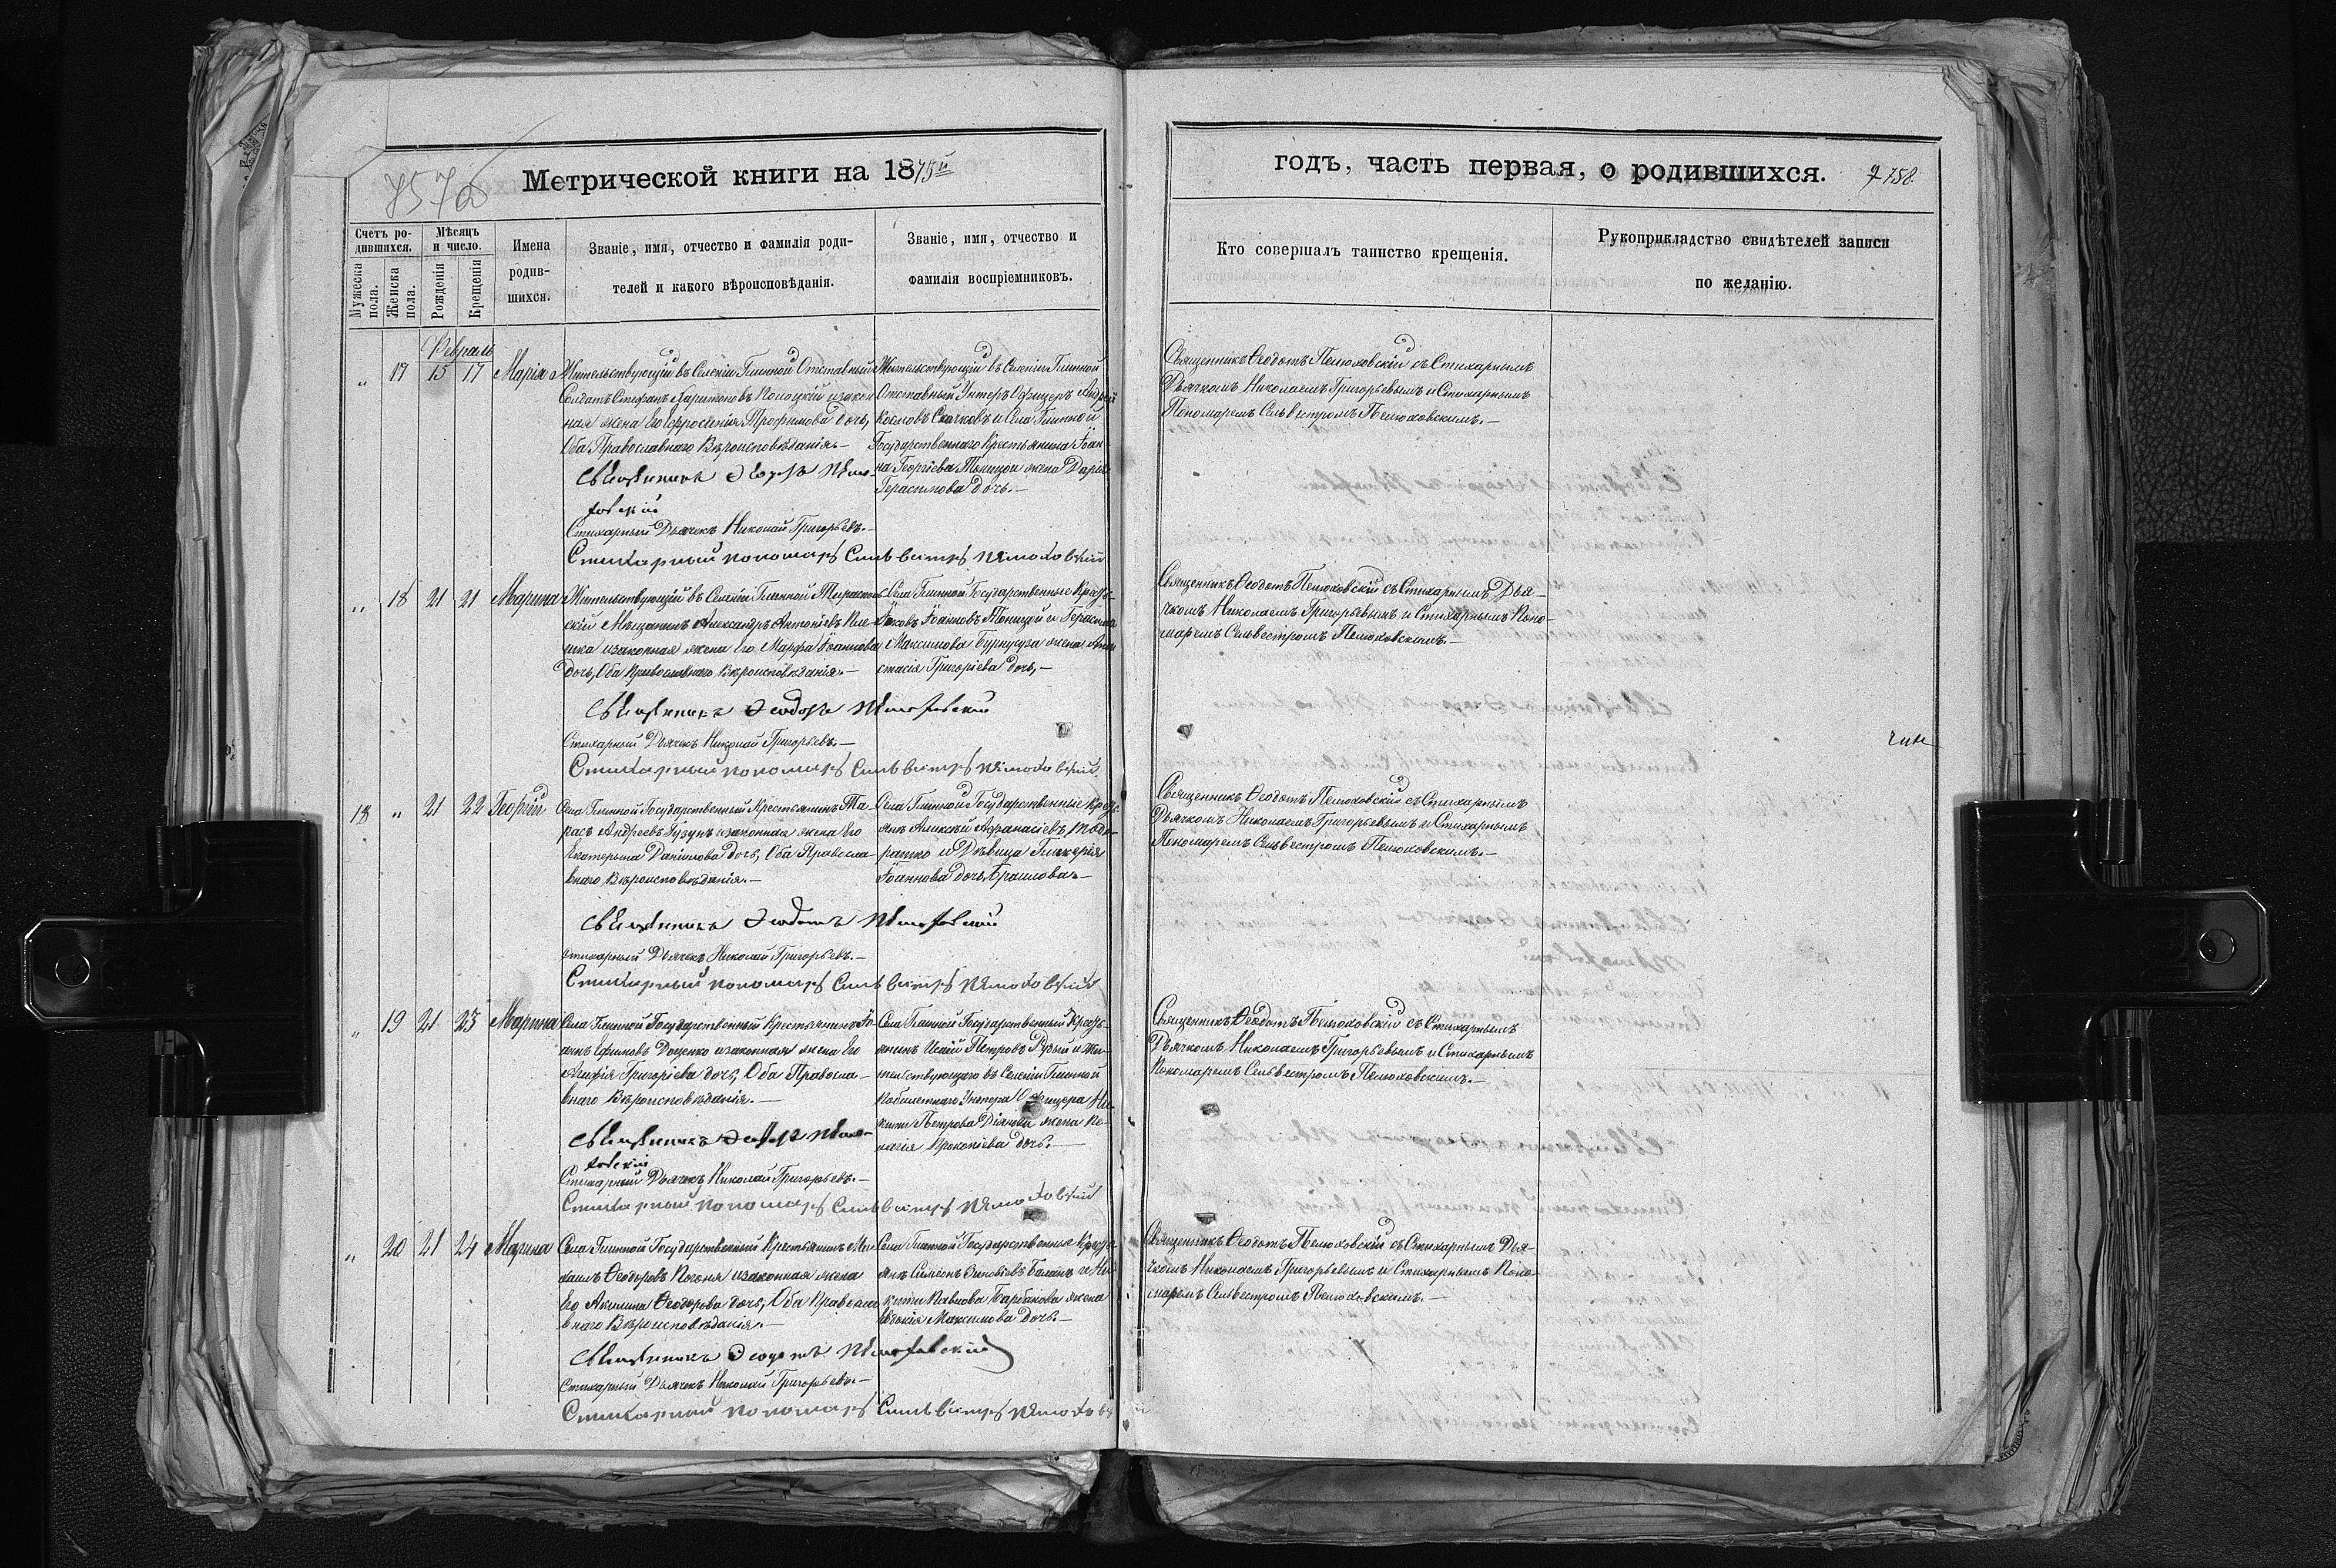 Метрической книги на 1875й
годъ, часть первая, о родившихся.
758.
Счетъ ро-
дившихся.
Мужеска пола.
Женска пола.
Мѣсяцъ
и число.
Рожденія
Крещенія
Имена
родив-
шихся.
Званіе, имя, отчество и фамилія роди-
телей и какого вѣроисповѣданія.
Званіе, имя, отчество и
фамилія воспріемниковъ.
Кто совершалъ таинство крещенія.
Рукоприкладство свидѣтелей записи
по желанію.
Февраль
„ 17 15 17 Марія
Жительствующій въ Селеніи Глинной Отставный
Солдатъ Стефанъ Харитоновъ и закон-
ная жена Его Ефросинія Трофимова дочь,
Оба Православнаго Вѣроисповѣданія.—
Священникъ Ѳеодотъ
Стихарный Дьячекъ Николай Григорьевъ.—
Стихарный пономарь Сильвестръ
Жительствующій въ Селеніи Глинной
Отставный Унтеръ Офицеръ Андрей
и Села Глинной
Государственнаго Крестьянина Іоан-
на Георгіева жена Дарія
Герасимова дочь.—
Священникъ Ѳеодотъ съ Стихарнымъ
Дьячкомъ Николаемъ Григорьевымъ и Стихарнымъ
Пономаремъ Сельвестромъ
„ 18 21 21 Марина
Жительствующій въ Селеніи Глинной Тираспол-
скій Мѣщанинъ Александръ Антоніевъ
и законная жена Его Марфа Іоаннова
дочь, Оба Православнаго Вѣроисповѣданія.—
Священникъ Ѳеодотъ
Стихарный Дьячекъ Николай Григорьевъ.—
Стихарный пономарь Сильвестръ
Села Глинной Государственные Кресть-
Іаковъ Іоанновъ и Герасима
Максимова жена Ана-
стасія Григоріева дочь,—
Священникъ Ѳеодотъ съ Стихарнымъ Дья-
чкомъ Николаемъ Григорьевымъ и Стихарнымъ Поно-
маремъ Сельвестромъ
18 „ 21 22 Георгій
Села Глинной Государственный Крестьянинъ Та-
расъ Андреевъ Гузунъ и законная жена Его
Екатерина Даніилова дочь, Оба Правосла-
внаго Вѣроисповѣданія.—
Священникъ Ѳеодотъ
Стихарный Дьячекъ Николай Григорьевъ.—
Стихарный пономарь Сильвестръ
Села Глинной Государственные Кресть-
яне Алексѣй Афанасіевъ
и Дѣвица Гликерія
Іоаннова дочь
Священникъ Ѳеодотъ съ Стихарнымъ
Дьячкомъ Николаемъ Григорьевымъ и Стихарнымъ
Пономаремъ Сельвестромъ
„ 19 21 23 Марина
Села Глинной Государственный Крестьянинъ Іо-
аннъ Ефимовъ Доценко и законная жена Его
Агафія Григоріева дочь, Оба Правосла-
внаго Вѣроисповѣданія.—
Священникъ Ѳеодотъ
Стихарный Дьячекъ Николай Григорьевъ.—
Стихарный пономарь Сильвестръ
Села Глинной Государственный Кресть-
янинъ Петровъ и Жи-
тельствующаго въ Селеніи Глинной
Унтера Офицера Ни-
киты Петрова жена Пе-
лагія Прокопіева дочь.—
Священникъ Ѳеодотъ съ Стихарнымъ
Дьячкомъ Николаемъ Григорьевымъ и Стихарнымъ
Пономаремъ Сельвестромъ
„ 20 21 24 Марина
Села Глинной Государственный Крестьянинъ Ми-
хаилъ Ѳеодоровъ и законная жена
Его Акилина Ѳеодорова дочь, Оба Правосла-
внаго Вѣроисповѣданія.—
Священникъ Ѳеодотъ
Стихарный Дьячекъ Николай Григорьевъ.—
Стихарный пономарь Сильвестръ
Села Глинной Государственные Кресть-
яне Симеонъ Зиновіевъ Баланъ и Ни-
киты Павлова Барбанова жена
Евгенія Максимова дочь.—
Священникъ Ѳеодотъ съ Стихарнымъ Дья-
чкомъ Николаемъ Григорьевымъ и Стихарнымъ Поно-
маремъ Сельвестромъ